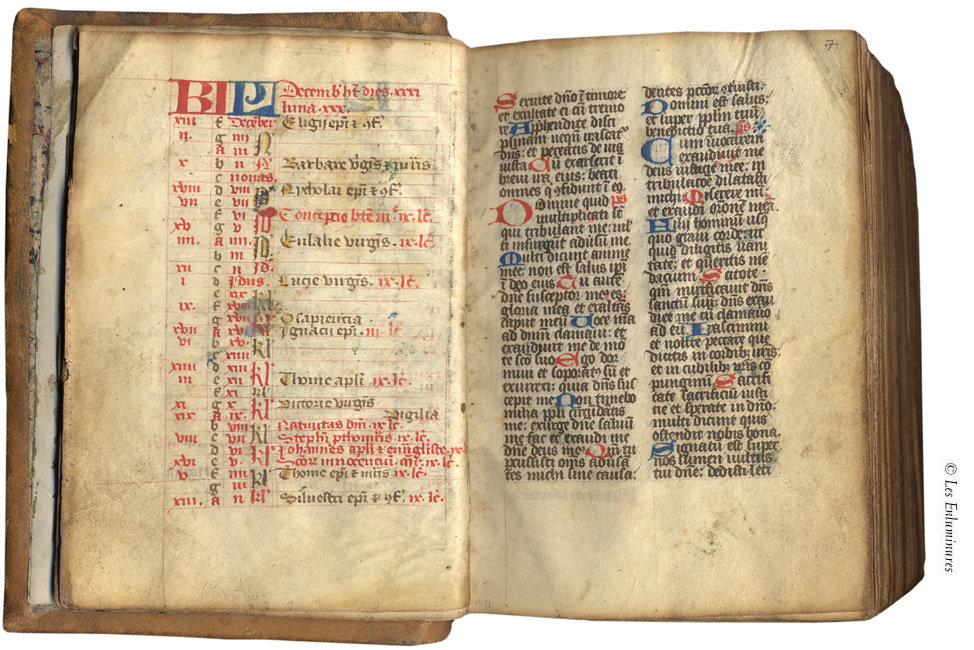 KL Decemb' ht' dies. xxxi
luna. xxx.
xiii f December Eligii epi ⁊ gf.
ii. g iiii N
a iii
x b ii N' Barbare v'gis. ⁊ m'tiris
c nonas.
xviii d viii Nycholai epi ⁊ gf.
vii e vii
f vi Jd Conceptio bte m' ix. lc.
xv g v
iiii. a iiii. Jd Eulalie virgis. ix. lc.
b iii
xii c ii Jd.
i d Jdus. Lucie virgis. ix. lc.
e xix
ix. f
g Osapientia
xvii a xvi Ignacii epi. iii. lc.
vi b kl
c xiiii
xiiii d xiii kl
iii e xii Thome apli ix. lc.
f xi kl
xi g x kl Victorie virgis
xix a ix. Vigilia
b viii kl Nativitas dni. ix. lc.
viii c vii Stephi pthomris ix. lc.
d vi kl Johannes apli ⁊ eu'ngliste ix. lc.
xvi e v. Scor innocentiu m'. ix. lc.
v f iiii kl Thome epi ⁊ m'ris ix. lc.
g iii
xiii. a ii kl Silvestri epi ⁊ gf. ix. lc.
7
Servite dno ī timore:
et exultate ei cū tremo
re Apphendite disci
plinam nequn irascat'
dns: et pereatis de via
iusta Cū exarserit ī
brevi ira eius: beati
omnes q gfidunt ī eo
Domine quid ps
multiplicati st
qui tribulant me: ml
ti insurgunt adūsū me
Multi dicunt anime
mee: non est salus ipi
ī deo eius Tu autē
dne susceptor meus es:
gloria mea et exaltās
caput meū Voce mea
ad dnm clamavi: et
exaudivit me de mō
te sco suo Ego dor
mivi et soporat' sū et
exurrexi: quia dns sus
cepit me Non timebo
milia ppli circūdantis
me: exurge dne salvū
me fac et exaudi me
dne deus me' Qm tu
pcussisti oms adūsā
tes michi sine causa:
dentes pccōr gtrivisti.
Domini est salus:
et super pplm tuū
benedictio tua. ps
Cum invocarem
exaudivit me
deus iusticie mee: in
tribulatōe dilatasti
michi Miserere mi.
et exaudi orōne meā.
Filii hominū usq
quo gravi corde: ut
quid diligitis vani
tatē: et queritis me
dacium Scitote
qm mirificavit dns
sanctū suū: dns exau
diet me cū clamavo
ad eū Irascimini
et nolite peccare que
dicitis in cordib' vris:
et in cubilib' vris cō
pungimī Sacrifi
cate sacrificiū iusti
cie et sperate in dno:
multi dicūnt quis
ostendit nobis bona.
Signatū est super
nos lumen vultus
tui dne: dedisti leti
© Les Enluminures